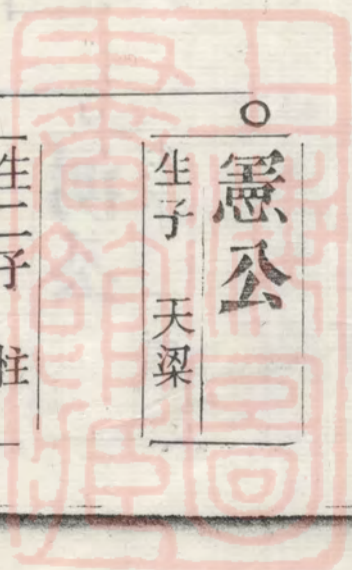 ○憲公
生子 天梁
生二子 柱